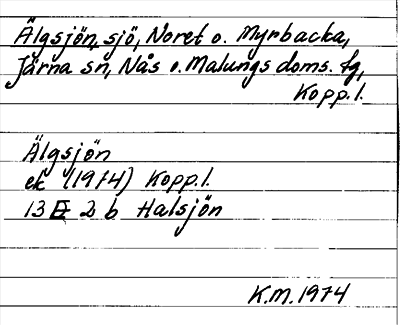 Älgsjön, sjö, Noret o. Myrbacka,
Järna sn, Nås o. Malungs doms. tg,
Kopp. l.
Älgsjön
ek (1974) Kopp. l.
13 E 2 b Halsjön
K.M. 1974